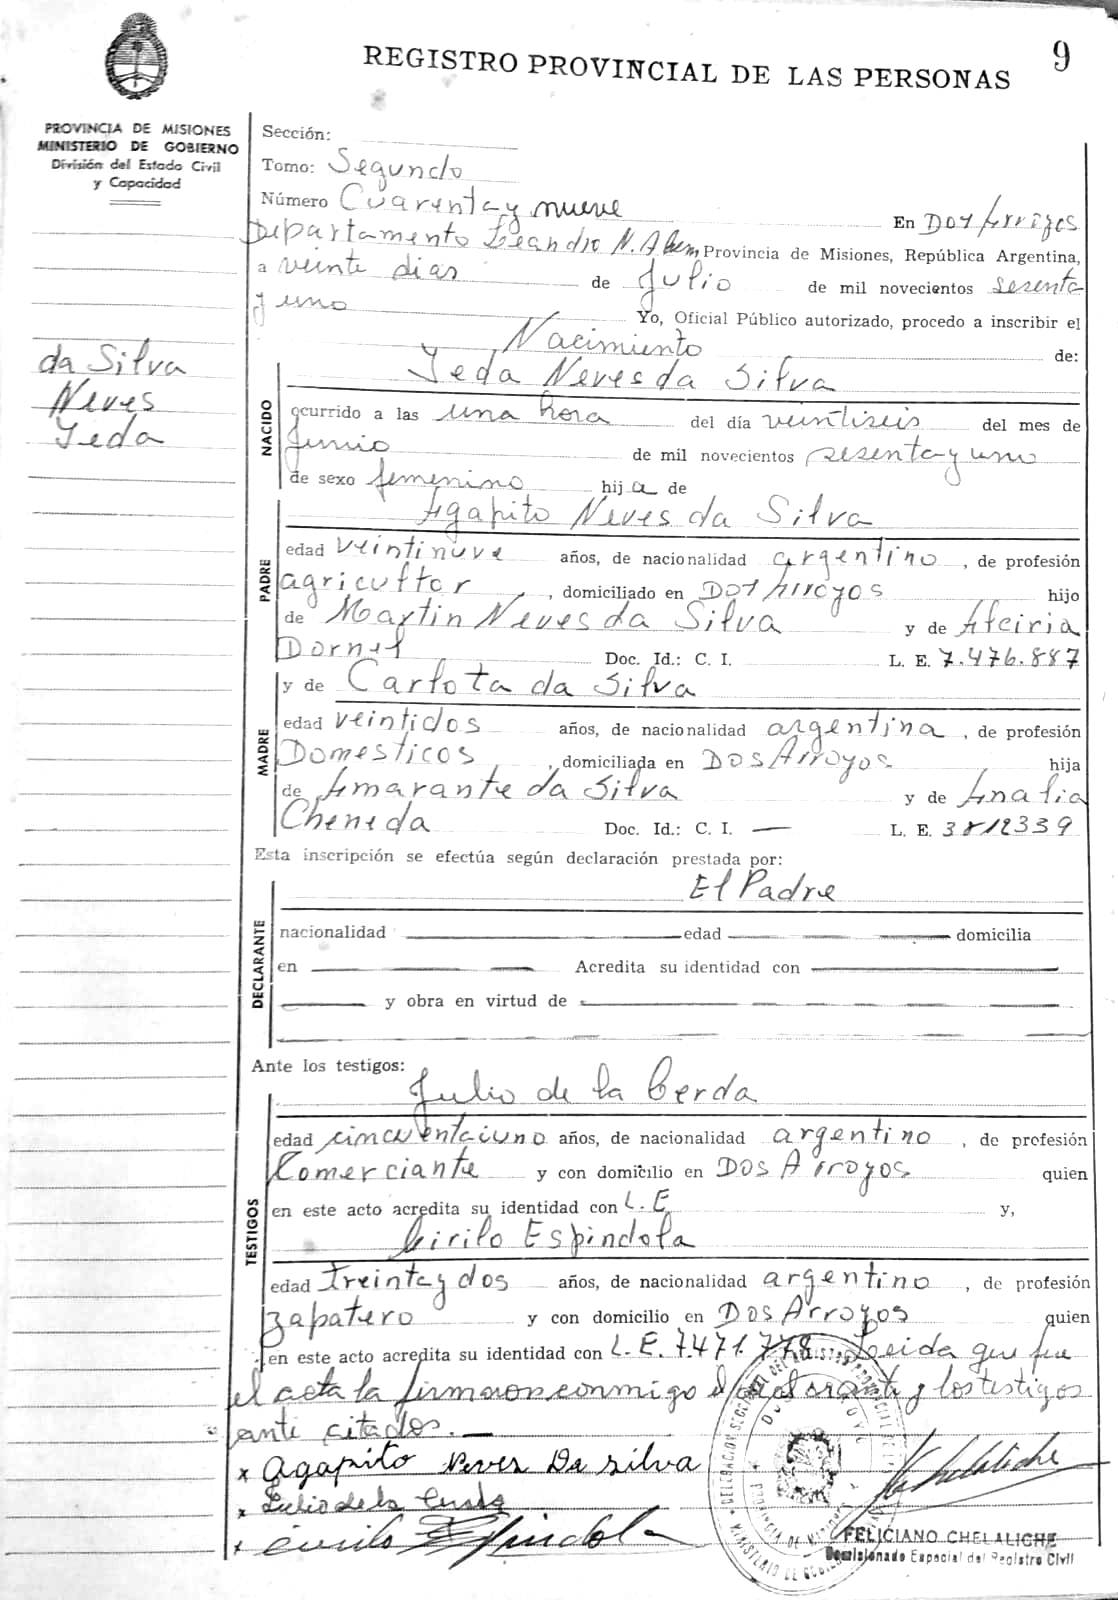 REGISTRO PROVINCIAL DE LAS PERSONAS
9
PROVINCIA DE MISIONES
MINISTERIO DE GOBIERNO
División del Estado Civil
y Capacidad
Sección:
Tomo: Segundo
Número Cuarenta y nueve
En Dos Arroyos
Departamento Leandro N. Alem, Provincia de Misiones, República Argentina,
a veinte dias de Julio de mil novecientos sesenta
y uno Yo, Oficial Público autorizado, procedo a inscribir el
Nacimiento de:
da Silva
Neves
Yeda
NACIDO
Yeda Neves da Silva
ocurrido a las una hora del día veintiseis del mes de
Junio de mil novecientos sesenta y uno
de sexo femenino hija de
PADRE
Agapito Neves da Silva
edad veintinuve años, de nacionalidad argentino, de profesión
agricultor, domiciliado en Dos Arroyos hijo
de Martin Neves da Silva y de Alciria
Dornel Doc. Id.: C. I. L. E. 7.476.887
MADRE
y de Carlota da Silva
edad veintidos años, de nacionalidad argentina, de profesión
Domesticos, domiciliada en Dos Arroyos hija
de Amarante da Silva y de Analia
Cheneda Doc. Id.: C. I. — L. E. 3812339
Esta inscripción se efectúa según declaración prestada por:
El Padre
DECLARANTE
nacionalidad edad domicilia
en Acredita su identidad con
y obra en virtud de
Ante los testigos:
TESTIGOS
Julio de la Cerda
edad cincuentaiuno años, de nacionalidad argentino, de profesión
Comerciante y con domicilio en Dos Arroyos quien
en este acto acredita su identidad con L.E y,
Cirilo Espindola
edad treinta y dos años, de nacionalidad argentino, de profesión
zapatero y con domicilio en Dos Arroyos quien
en este acto acredita su identidad con L.E. 7.471.778 Leida que fue
el acta la firmaron conmigo el declarante y los testigos
ante citados.—
x Agapito Neves Da silva
x Julio de la Cerda
x Cirilo Espindola
FELICIANO CHELALICHE
Comisionado Especial del Registro Civil